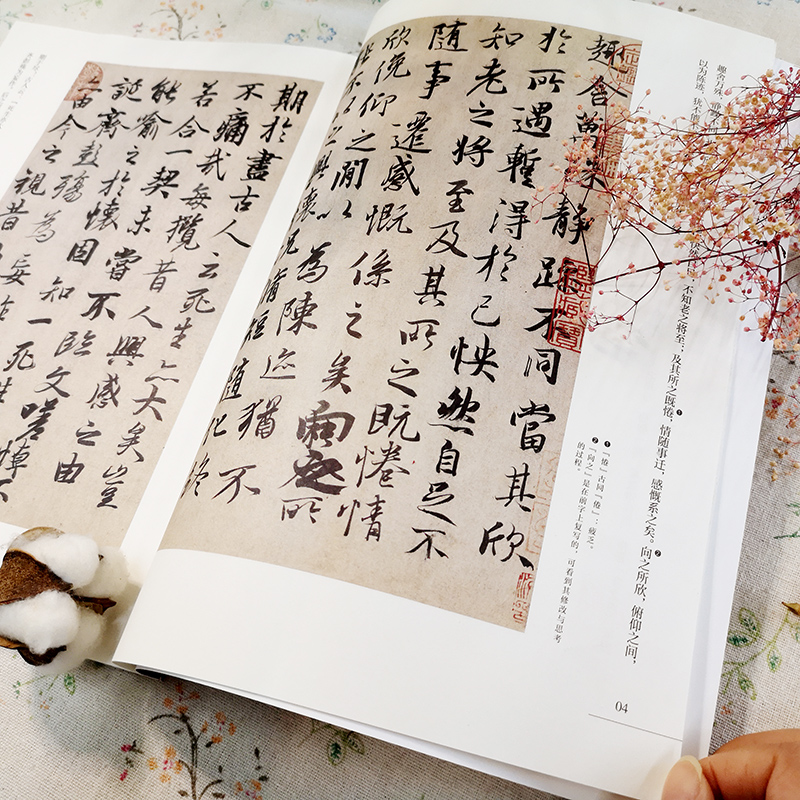 趣舍万殊，静
快然自足，不知老之将至；及其所之既惓❶，情随事迁，感慨系之矣❷。向之所欣，俯仰之间，
以为陈迹，犹不能
❶「惓」古同「倦」：疲乏。
❷「向之」是在前字上复写的，可看到其修改与思考
的过程。
04
趣舍萬殊靜躁不同當其欣
於所遇蹔得於己怏然自足不
知老之將至及其所之既惓情
隨事遷感慨係之矣向之所
欣俛仰之間以為陳迹猶不
能不以之興懷況脩短隨化終
期於盡古人云死生亦大矣豈
不痛哉每攬昔人興感之由
若合一契未嘗不臨文嗟悼不
能喻之於懷固知一死生
誕齊彭殤為妄作
由今之視昔